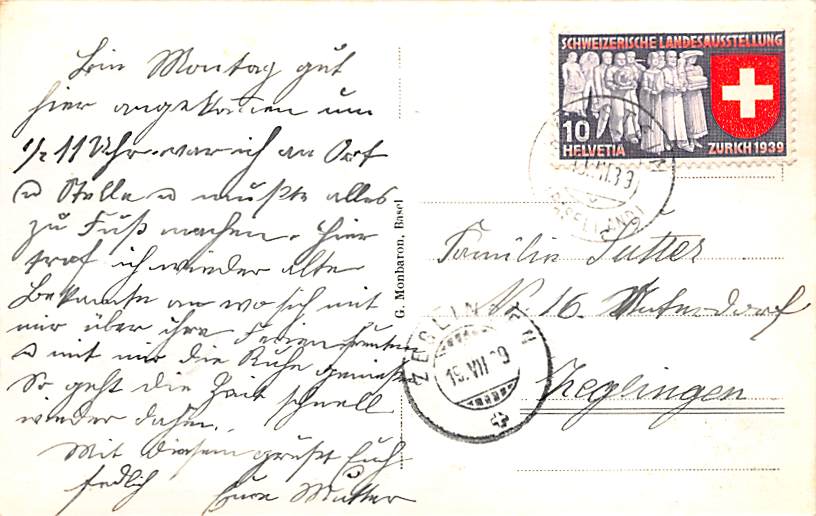 Bin Montag gut
hier angekommen um
1/2 11 Uhr war ich an Ort
u Stelle u mußte alles
zu Fuß machen. Hier
traf ich wieder alte
Bekannte an wo sich mit
mir über ihre Ferien freuten
u mit mir die Ruhe genießen
So geht die Zeit schnell
wieder dahin.
Mit diesem grüßt Euch
Eure Mutter
G. Monbaron, Basel
SCHWEIZERISCHE LANDESAUSSTELLUNG
10
HELVETIA ZÜRICH 1939
Familie Sutter
N° 16. Unterdorf
Zeglingen
ZEGLINGEN
19. VII 39